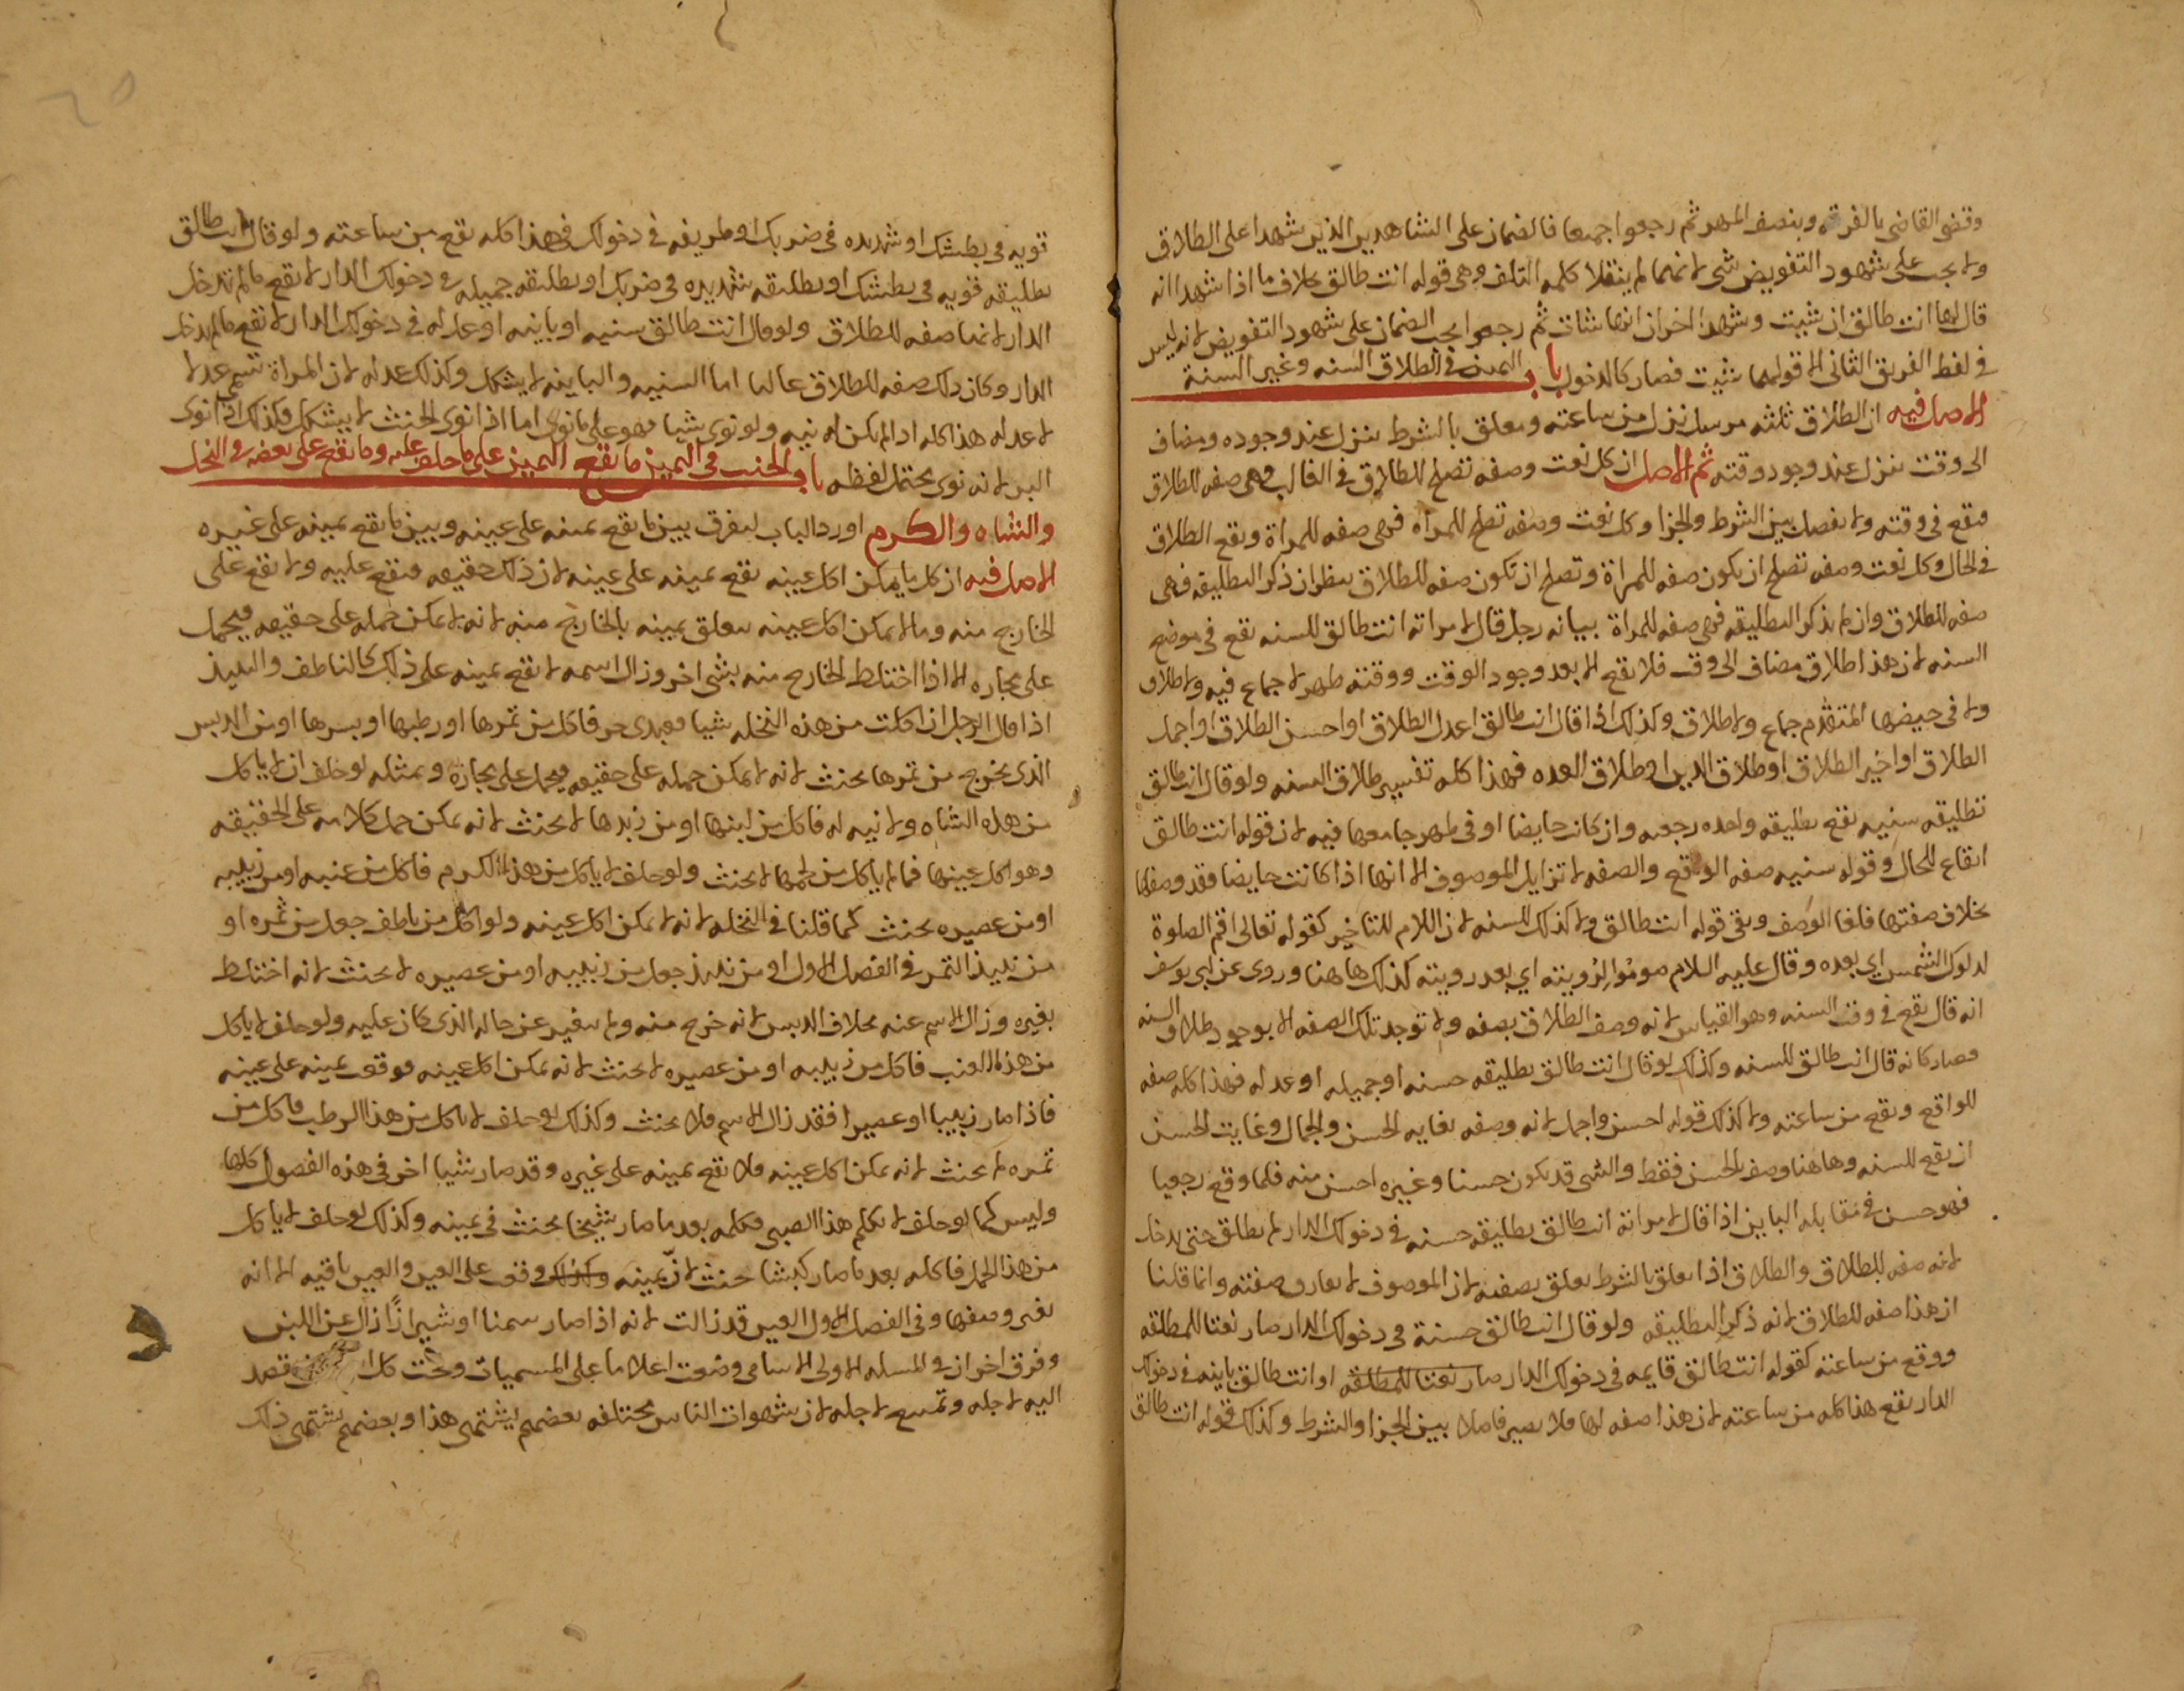 وقضى القاضي بالفرقه وبنصف المهر ثم رجعوا جميعا فالضمان على الشاهدين الذين شهدا على الطلاق
ولا يجب على شهود التفويض شي لانهما لم ينقلا كلمه التلف وهي قوله انت طالق بخلاف ما اذا شهدا انه
قال لها انت طالق ان شيت وشهد اخران انها شات ثم رجعوا يجب الضمان على شهود التفويض لانه ليس
في لفظ الفريق الثاني الا قولهما شيت فصار كالدخول باب اليمين في الطلاق السنه وغير السنة
الاصل فيه ان الطلاق ثلثه مرسل نزل من ساعته ومعلق بالشرط ينزل عند وجوده ومضاف
الى وقت ينزل عند وجود وقته ثم الاصل ان كل نعت وصفه تصلح للطلاق في الغالب فهي صفه للطلاق
فيقع في وقته ولا يفصل بين الشرط والجزا وكل نعت وصفه تصلح للمراه فهي صفه للمراة ويقع الطلاق
في الحال وكل نعت وصفه تصلح ان يكون صفه للمراة وتصلح ان تكون صفه للطلاق ينظر ان ذكر التطليقه فهي
صفه للطلاق وان لم يذكر التطليقه فهي صفه للمراة بيانه رجل قال لامراته انت طالق للسنه تقع في موضع
السنه لان هذا طلاق مضاف الى وقت فلا يقع الا بعد وجود الوقت ووقته طهر لا جماع فيه ولا طلاق
ولا في حيضها المتقدم جماع ولا طلاق وكذلك اذا قال انت طالق اعدل الطلاق او احسن الطلاق او اجمل
الطلاق او اخير الطلاق او طلاق الدين او طلاق العده فهذا كله تفسير طلاق السنه ولو قال انت طالق
تطليقه سنيه تقع تطليقه واحده رجعيه وان كانت حايضا او في طهر جامعها فيه لان قوله انت طالق
ايقاع للحال وقوله سنيه صفه الواقع والصفه لا تزايل الموصوف الا انها اذا كانت حايضا فقد وصفها
بخلاف صفتها فلغا الوصف وبقي قوله انت طالق ولا كذلك للسنه لان اللام للتاخير كقوله تعالى اقم الصلوة
لدلوك الشمس اي بعده وقال عليه السلام صوموا لرويته اي بعد رويته كذلك ها هنا وروى عن ابي يوسف
انه قال يقع في وقت السنه وهو القياس لانه وصف الطلاق بصفه ولا توجد تلك الصفه الا بوجود طلاق السنه
فصار كانه قال انت طالق للسنه وكذلك لو قال انت طالق تطليقه حسنه او جميله او عدله فهذا كله صفه
للواقع ويقع من ساعته ولا كذلك قوله احسن واجمل لانه وصفه بغايه الحسن والجمال وغايت الحسن
ان يقع للسنه وها هنا وصف بالحسن فقط والشي قد يكون حسنا وغيره احسن منه فلما وقع رجعيا
فهو حسن في مقابله الباين اذا قال لامراته انت طالق تطليقه حسنه في دخولك الدار لم تطلق حتى تدخل
لانه صفه للطلاق والطلاق اذا تعلق بالشرط تعلق بصفته لان الموصوف لا يفارق صفته وانما قلنا
ان هذا صفه للطلاق لانه ذكر التطليقه ولو قال انت طالق حسنة في دخولك الدار صار نعتا للمطلقه
ووقع من ساعته كقوله انت طالق قايمه في دخولك الدار صار نعتا للمطلقه او انت طالق باينه في دخولك
الدار يقع هذا كله من ساعته لان هذا صفه لها فلا يصير فاصلا بين الجزا والشرط وكذلك قوله انت طالق
قويه في بطشك او شديده في ضربك او ظريفه في دخولك فهذا كله يقع من ساعته ولو قال انت طالق
تطليقه قويه في بطشك او تطليقه شديده في ضربك او تطليقه جميله في دخولك الدار لا تقع ما لم تدخل
الدار لانها صفه للطلاق ولو قال انت طالق سنيه او باينه او عدله في دخولك الدار لا تقع ما لم تدخل
الدار وكان ذلك صفه للطلاق غالبا اما السنيه والباينه لا يشكل وكذلك عدله لان المراة تسمى عدلا
لا عدله هذا كله اذا لم يكن له نيه ولو نوى شيا فهو على ما نوى اما اذا نوى الحنث لا يشكل وكذلك اذا نوى
البر لانه نوى يحتمل لفظه باب الحنث في اليمين ما يقع اليمين على ما حلف عليه وما يقع على بعضه في النخل
والشاه والكرم اورد الباب ليفرق بين ما يقع يمينه على عينه وبين ما يقع يمينه على غيره
الاصل فيه ان كل ما يمكن اكل عينه يقع يمينه على عينه لان ذلك حقيقه فيقع عليه ولا يقع على
الخارج منه وما لا يمكن اكل عينه تعلق يمينه بالخارج منه لانه لا يمكن حمله على حقيقه فيحمل
على مجازه الا اذا اختلط الخارج منه بشي اخر وزال اسمه لا تقع يمينه على ذلك كالناطف والنبيذ
اذا قال الرجل ان اكلت من هذه النخله شيا فعبدي حر فاكل من تمرها او رطبها او بسرها او من الدبس
الذي يخرج من تمرها يحنث لانه لا يمكن حمله على حقيقه فيحمل على مجازه وبمثله لو حلف ان لا ياكل
من هذه الشاه ولا نيه له فاكل من لبنها او من زبدها لا يحنث لانه يمكن حمل كلامه على الحقيقه
وهو اكل عينها فما لم ياكل من لحمها لا يحنث ولو حلف لا ياكل من هذا الكرم فاكل من عنبه او من زبيبه
او من عصيره يحنث كما قلنا في النخله لانه لا يمكن اكل عينه ولو اكل من ناطف جعل من ثمره او
من نبيذ التمر في الفصل الاول او من نبيذ جعل من زبيبه او من عصيره لا يحنث لانه اختلط
بغيره وزال الاسم عنه بخلاف الدبس لانه خرج منه ولم يتغير عن حاله الذي كان عليه ولو حلف لا ياكل
من هذا العنب فاكل من زبيبه او من عصيره لا يحنث لانه يمكن اكل عينه فوقعت يمينه على عينه
فاذا صار زبيبا او عصيرا فقد زال الاسم فلا يحنث وكذلك لو حلف لا ياكل من هذا الرطب فاكل من
تمره لم يحنث لانه يمكن اكل عينه فلا تقع يمينه على غيره وقد صار شيا اخر في هذه الفصول كلها
وليس كما لو حلف لا يكلم هذا الصبي فكلمه بعد ما صار شيخا يحنث في يمينه وكذلك لو حلف لا ياكل
من هذا الحمل فاكله بعد ما صار كبشا حنث لان يمينه وقعت على العين والعين باقيه الا انه
تغير وصفها وفي الفصل الاول العين قد زالت لانه اذا صار سمنا او شيرازا زال عن اللبن
وفرق اخر ان في المسله الاولى الاسامي وضعت اعلاما على المسميات وتحت كل قصد
اليه لاجله وتمنع لاجله لان شهوات الناس مختلفه بعضهم يشتهي هذا وبعضهم يشتهي ذلك